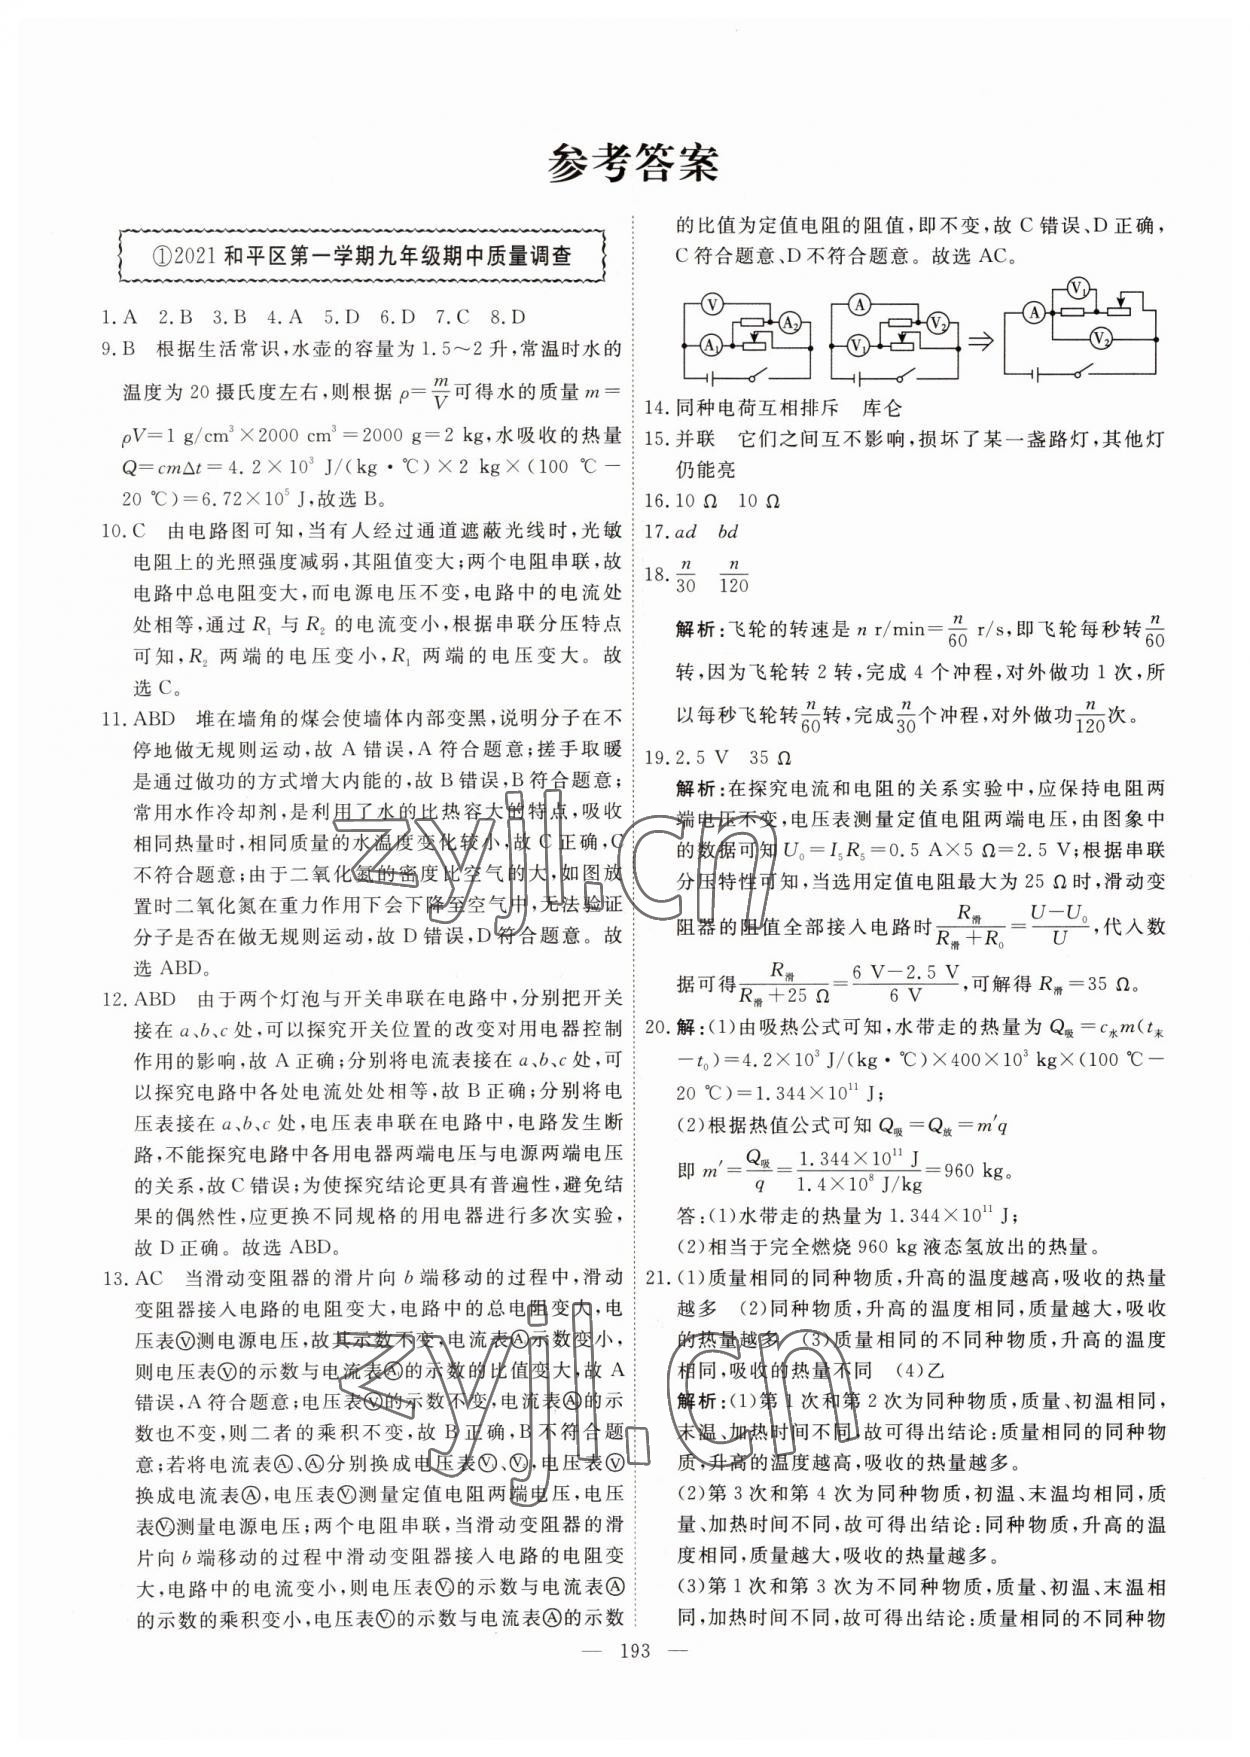 参考答案
①2021 和平区第一学期九年级期中质量调查
1. A 2. B 3. B 4. A 5. D 6. D 7. C 8. D
9. B 根据生活常识,水壶的容量为 1.5～2 升,常温时水的
温度为 20 摄氏度左右,则根据 ρ=m/V 可得水的质量 m=
ρV=1 g/cm³×2000 cm³=2000 g=2 kg,水吸收的热量
Q=cmΔt=4.2×10³ J/(kg·℃)×2 kg×(100 ℃-
20 ℃)=6.72×10⁵ J,故选 B。
10. C 由电路图可知,当有人经过通道遮蔽光线时,光敏
电阻上的光照强度减弱,其阻值变大;两个电阻串联,故
电路中总电阻变大,而电源电压不变,电路中的电流处
处相等,通过 R₁ 与 R₂ 的电流变小,根据串联分压特点
可知,R₂ 两端的电压变小,R₁ 两端的电压变大。故
选 C。
11. ABD 堆在墙角的煤会使墙体内部变黑,说明分子在不
停地做无规则运动,故 A 错误,A 符合题意;搓手取暖
是通过做功的方式增大内能的,故 B 错误,B 符合题意;
常用水作冷却剂,是利用了水的比热容大的特点,吸收
相同热量时,相同质量的水温度变化较小,故 C 正确,C
不符合题意;由于二氧化氮的密度比空气的大,如图放
置时二氧化氮在重力作用下会下降至空气中,无法验证
分子是否在做无规则运动,故 D 错误,D 符合题意。故
选 ABD。
12. ABD 由于两个灯泡与开关串联在电路中,分别把开关
接在 a、b、c 处,可以探究开关位置的改变对用电器控制
作用的影响,故 A 正确;分别将电流表接在 a、b、c 处,可
以探究电路中各处电流处处相等,故 B 正确;分别将电
压表接在 a、b、c 处,电压表串联在电路中,电路发生断
路,不能探究电路中各用电器两端电压与电源两端电压
的关系,故 C 错误;为使探究结论更具有普遍性,避免结
果的偶然性,应更换不同规格的用电器进行多次实验,
故 D 正确。故选 ABD。
13. AC 当滑动变阻器的滑片向 b 端移动的过程中,滑动
变阻器接入电路的电阻变大,电路中的总电阻变大,电
压表Ⓥ测电源电压,故其示数不变,电流表Ⓐ示数变小,
则电压表Ⓥ的示数与电流表Ⓐ的示数的比值变大,故 A
错误,A 符合题意;电压表Ⓥ的示数不变,电流表Ⓐ的示
数也不变,则二者的乘积不变,故 B 正确,B 不符合题
意;若将电流表Ⓐ、Ⓐ分别换成电压表Ⓥ、Ⓥ,电压表Ⓥ
换成电流表Ⓐ,电压表Ⓥ测量定值电阻两端电压,电压
表Ⓥ测量电源电压;两个电阻串联,当滑动变阻器的滑
片向 b 端移动的过程中滑动变阻器接入电路的电阻变
大,电路中的电流变小,则电压表Ⓥ的示数与电流表Ⓐ
的示数的乘积变小,电压表Ⓥ的示数与电流表Ⓐ的示数
的比值为定值电阻的阻值,即不变,故 C 错误、D 正确,
C 符合题意、D 不符合题意。故选 AC。
V A₂ A₁ A V₂ V₁ V₁ A V₂
14. 同种电荷互相排斥 库仑
15. 并联 它们之间互不影响,损坏了某一盏路灯,其他灯
仍能亮
16. 10 Ω 10 Ω
17. ad bd
18. n/30 n/120
解析:飞轮的转速是 n r/min=n/60 r/s,即飞轮每秒转n/60
转,因为飞轮转 2 转,完成 4 个冲程,对外做功 1 次,所
以每秒飞轮转n/60转,完成n/30个冲程,对外做功n/120次。
19. 2.5 V 35 Ω
解析:在探究电流和电阻的关系实验中,应保持电阻两
端电压不变,电压表测量定值电阻两端电压,由图象中
的数据可知 U₀=I₅R₅=0.5 A×5 Ω=2.5 V;根据串联
分压特性可知,当选用定值电阻最大为 25 Ω时,滑动变
阻器的阻值全部接入电路时R滑/(R滑+R₀)=(U-U₀)/U,代入数
据可得R滑/(R滑+25 Ω)=(6 V-2.5 V)/6 V,可解得 R滑=35 Ω。
20. 解:(1)由吸热公式可知,水带走的热量为 Q吸=c水m(t末
-t₀)=4.2×10³ J/(kg·℃)×400×10³ kg×(100 ℃-
20 ℃)=1.344×10¹¹ J;
(2)根据热值公式可知 Q吸=Q放=m′q
即 m′=Q吸/q=1.344×10¹¹ J/1.4×10⁸ J/kg=960 kg。
答:(1)水带走的热量为 1.344×10¹¹ J;
(2)相当于完全燃烧 960 kg 液态氢放出的热量。
21. (1)质量相同的同种物质,升高的温度越高,吸收的热量
越多 (2)同种物质,升高的温度相同,质量越大,吸收
的热量越多 (3)质量相同的不同种物质,升高的温度
相同,吸收的热量不同 (4)乙
解析:(1)第 1 次和第 2 次为同种物质,质量、初温相同,
末温、加热时间不同,故可得出结论:质量相同的同种物
质,升高的温度越高,吸收的热量越多。
(2)第 3 次和第 4 次为同种物质,初温、末温均相同,质
量、加热时间不同,故可得出结论:同种物质,升高的温
度相同,质量越大,吸收的热量越多。
(3)第 1 次和第 3 次为不同种物质,质量、初温、末温相
同,加热时间不同,故可得出结论:质量相同的不同种物
— 193 —
zyjl.cn
zyjl.cn